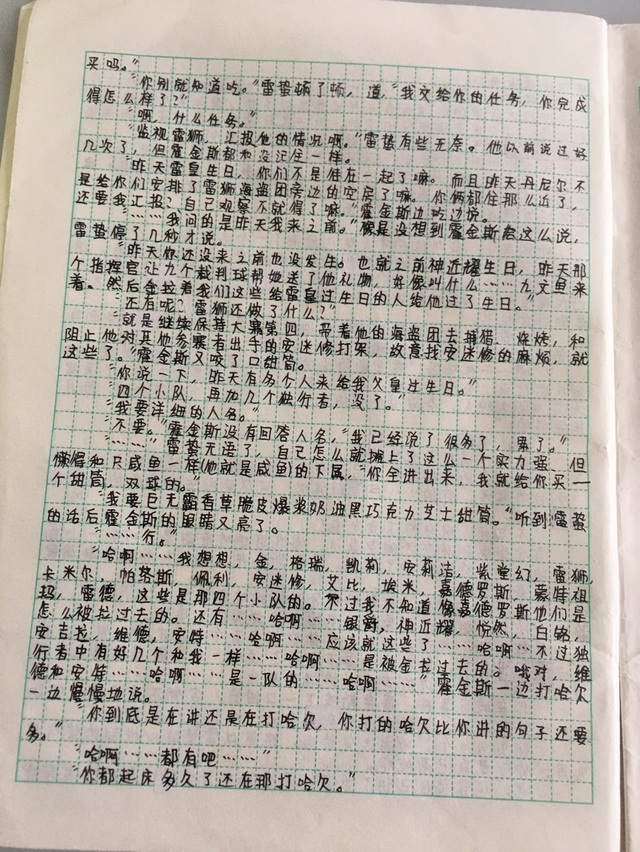 买吗。”
“你别就知道吃。”雷蛰顿了顿，道，“我交给你的任务，你完成
得怎么样了？”
“啊，什么任务。”
“监视雷狮，汇报他的情况啊。”雷蛰有些无奈。他以前说过好
几次了，但霍金斯都和没记住一样。
“昨天雷皇生日，你们不是住在一起了嘛。而且昨天丹尼尔不
是给你们安排了雷狮海盗团旁边的空房了嘛。你俩都住那么近了，
还要我汇报？自己观察不就得了嘛。”霍金斯边吃边说。
“……我问的是昨天我来之前。”像是没想到霍金斯会这么说，
雷蛰停了几秒才说。
“昨天你还没来之前也没发生。也就之前神近耀生日，昨天那
个指挥官让九个裁判球帮她送了他礼物，好像叫什么……九文旦来
着。然后金拉着我们这些给雷皇过生日的人给他过了生日。”
“还有呢？雷狮还做了什么？”
“就是继续保持大赛第四，带着他的海盗团去捕猎、烧烤，和
阻止他对其他参赛者出手的安迷修打架，故意找安迷修的麻烦，就
这些了。”霍金斯又咬了口甜筒。
“你说一下，昨天有多个人来给我父皇过生日。”
“四个小队，再加几个独行者，没了。”
“我要详细的人名。”
“不要。”霍金斯没有回答人名，“我已经说了很多了，累了。”
“……”雷蛰无语了，自己怎么就摊上了这么一个实力强，但
懒得和只咸鱼一样(他就是咸鱼)的下属，“你全讲出来，我就给你买一
个甜筒，双球的。”
“我要巨无霸香草脆皮爆浆奶油黑巧克力芝士甜筒。”听到雷蛰
的话后霍金斯的眼睛又亮了。
“……行。”
“哈啊……我想想，金，格瑞，凯莉，安莉洁，紫堂幻，雷狮，
卡米尔，帕洛斯，佩利，安迷修，艾比，埃米，嘉德罗斯，蒙特祖
玛，雷德，这些是那四个小队的。不过我不知道像嘉德罗斯他们是
怎么被拉过去的。还有……哈啊……银爵，神近耀，悦然，白铭，
安吉拉，维德，安特……哈啊……应该就这些了……哈啊…不过独
行者中有好几个和我一样……哈啊……是被金拉过去的。哦对，维
德和安特……哈啊……是一队的……哈啊……”霍金斯一边打哈欠
一边慢慢地说。
“你到底是在讲还是在打哈欠，你打的哈欠比你讲的句子还要
多。”
“哈啊……都有吧……”
“你都起床多久了还在那打哈欠。”